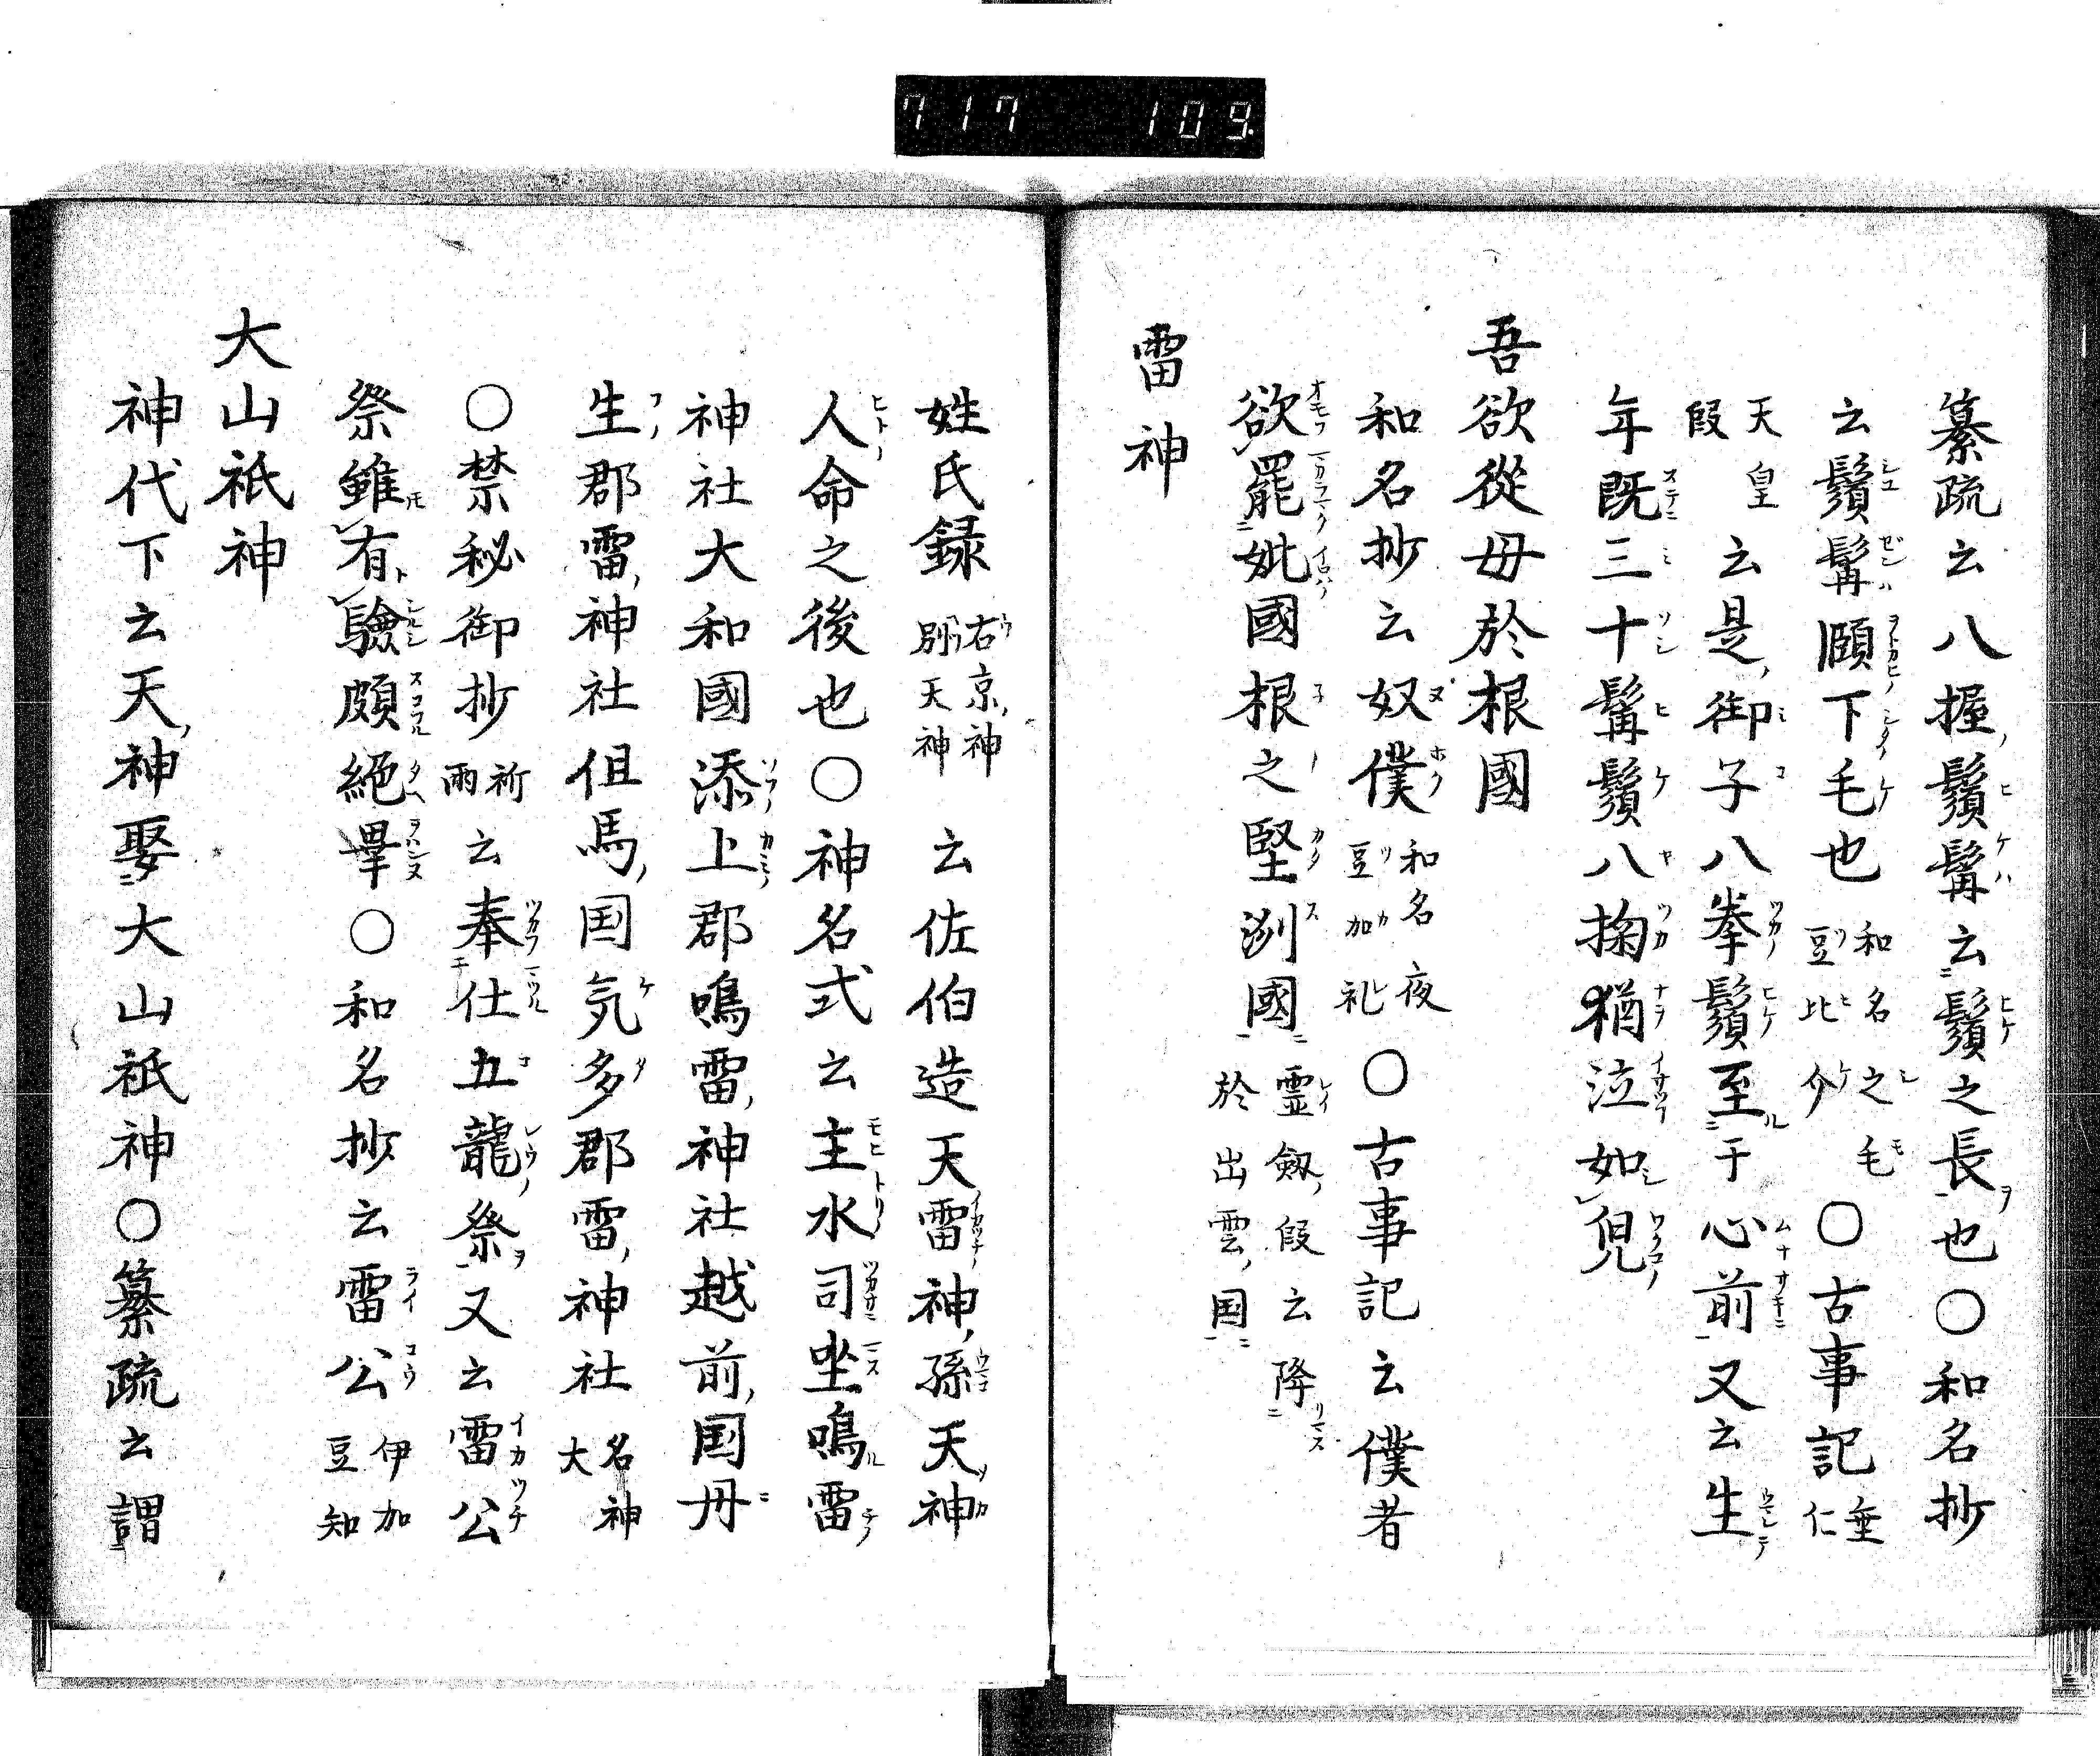 717 109
纂疏云八握鬚髯云鬚之長也〇和名抄
云鬚髯頤下毛也和名之毛豆比介〇古事記垂仁
天皇段云是御子八拳鬚至于心前又云生
年既三十髯鬚八掬猶泣如兒
吾欲從母於根國
和名抄云奴僕和名夜豆加礼〇古事記云僕者
欲罷妣國根之堅洲國霊劔段云降於出雲国
雷神
姓氏録右京神別天神云佐伯造天雷神孫天神
人命之後也〇神名式云主水司坐鳴雷
神社大和國添上郡鳴雷神社越前国丹
生郡雷神社但馬国気多郡雷神社名神大
〇禁秘御抄祈雨云奉仕五龍祭又云雷公
祭雖有驗頗絕畢〇和名抄云雷公伊加豆知
大山祇神
神代下云天神娶大山祇神〇纂疏云謂